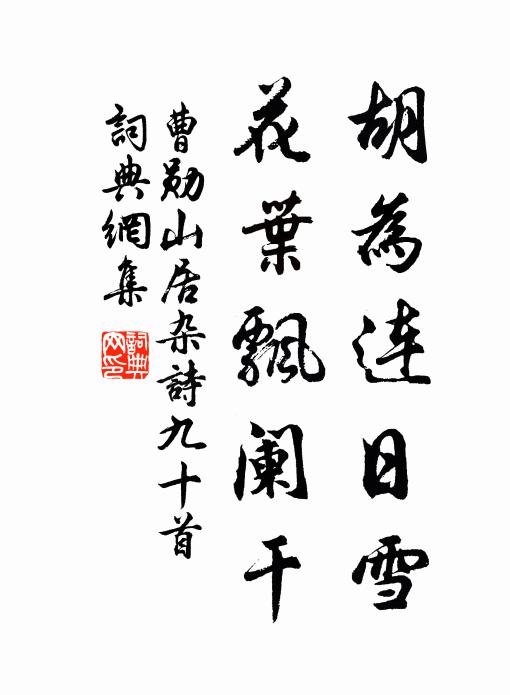 胡為連日雪
花葉飄阑干
曹勋山居杂詩九十首
詞典網集
詞典
网印